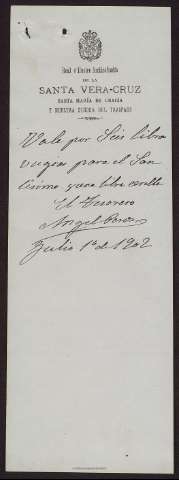 Real é Ilustre Archicofradía
DE LA
SANTA VERA-CRUZ
SANTA MARÍA DE GRACIA
Y NUESTRA SEÑORA DEL TRASPASO
Vale por Seis libras
bugías para el San
tísimo y una libra cerilla
El Tesorero
Angel
Julio 1º de 1902